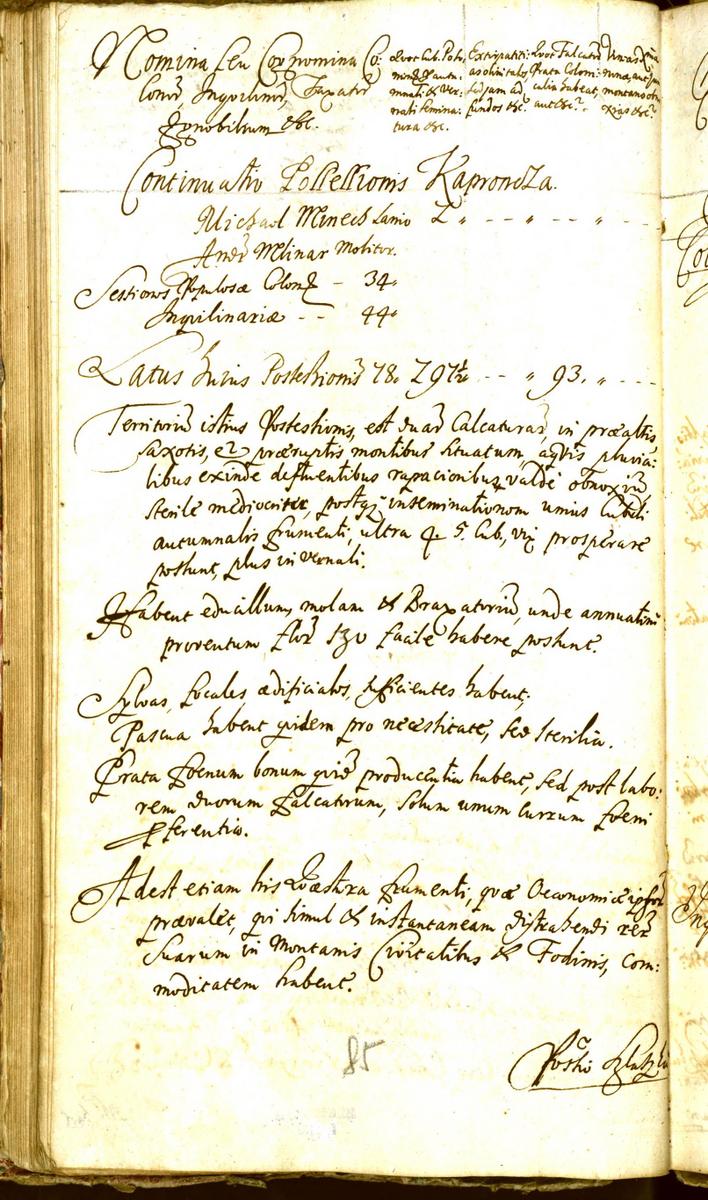 Nomina seu Cognomina Co:
lonor̃, Inquilinor̃, Taxator̃
Ignobilium &c.
Quot Cub. Poso:
nien: autu:
mnali & Ver:
nali semina:
tura &c.
Extirpatiti:
as
sed jam ad
fundos &c.
Quot Falcator̃
Prata Coloni:
calia habeat,
aut &c.
Vineas
montanost
&c.
Continuatio Possessionis Kaproncza.
Michael Minech Lanio 2 „ -- „ -- „ ---
Andr̃ Mlinar Molitor.
Sessiones Populosæ Colon - 34.
Inquilinariæ -- 44.
Latus huius Possessionis 78. 297½ -- „ 93. „ ---
Territoriũ istius Possessionis, est duar̃ Calcaturar̃, in præaltis
saxosis, et præruptis montibus situatum, aquis pluvia:
libus exinde defluentibus rapacionibusq valde obnoxiũ
sterile mediocriter, postq inseminationem unius Cubuli
autumnalis frumenti, ultra q 5. Cub., vix prosperare
possunt, plus in vernali.
Habent educillum, molam & Braxatoriũ, unde annuatim
proventum flor̃ 130 facile habere possunt.
Sylvas, focales ædificiales, sufficientes habent,
Pascua habent quidem pro necessitate, sed sterilia.
Prata foenum bonum quid producentia habent, sed post labo:
rem duorum falcatorum, solum unum currum foeni
fferentia.
Adest etiam his Quæstura frumenti, quæ Oeconomiæ ipsor̃
prævalet, qui simul & instantaneam distrahendi rer̃
suarum in Montanis Civitatibus & Fodinis, com:
moditatem habent.
85
Possio